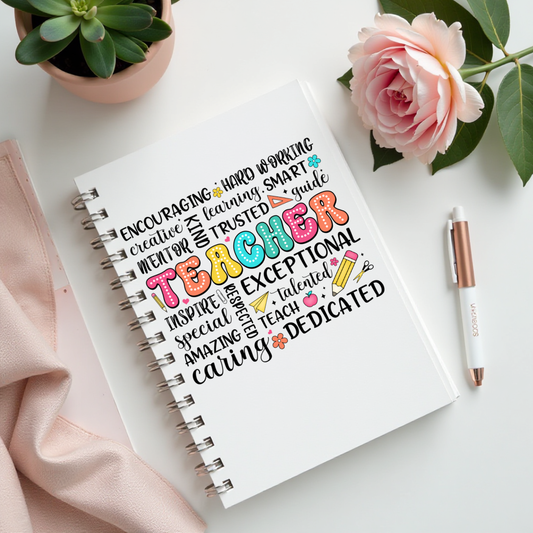 ENCOURAGING HARD WORKING
creative KIND learning SMART
MENTOR TRUSTED guide
TEACHER
INSPIRE RESPECTED EXCEPTIONAL
special talented
AMAZING TEACH DEDICATED
caring